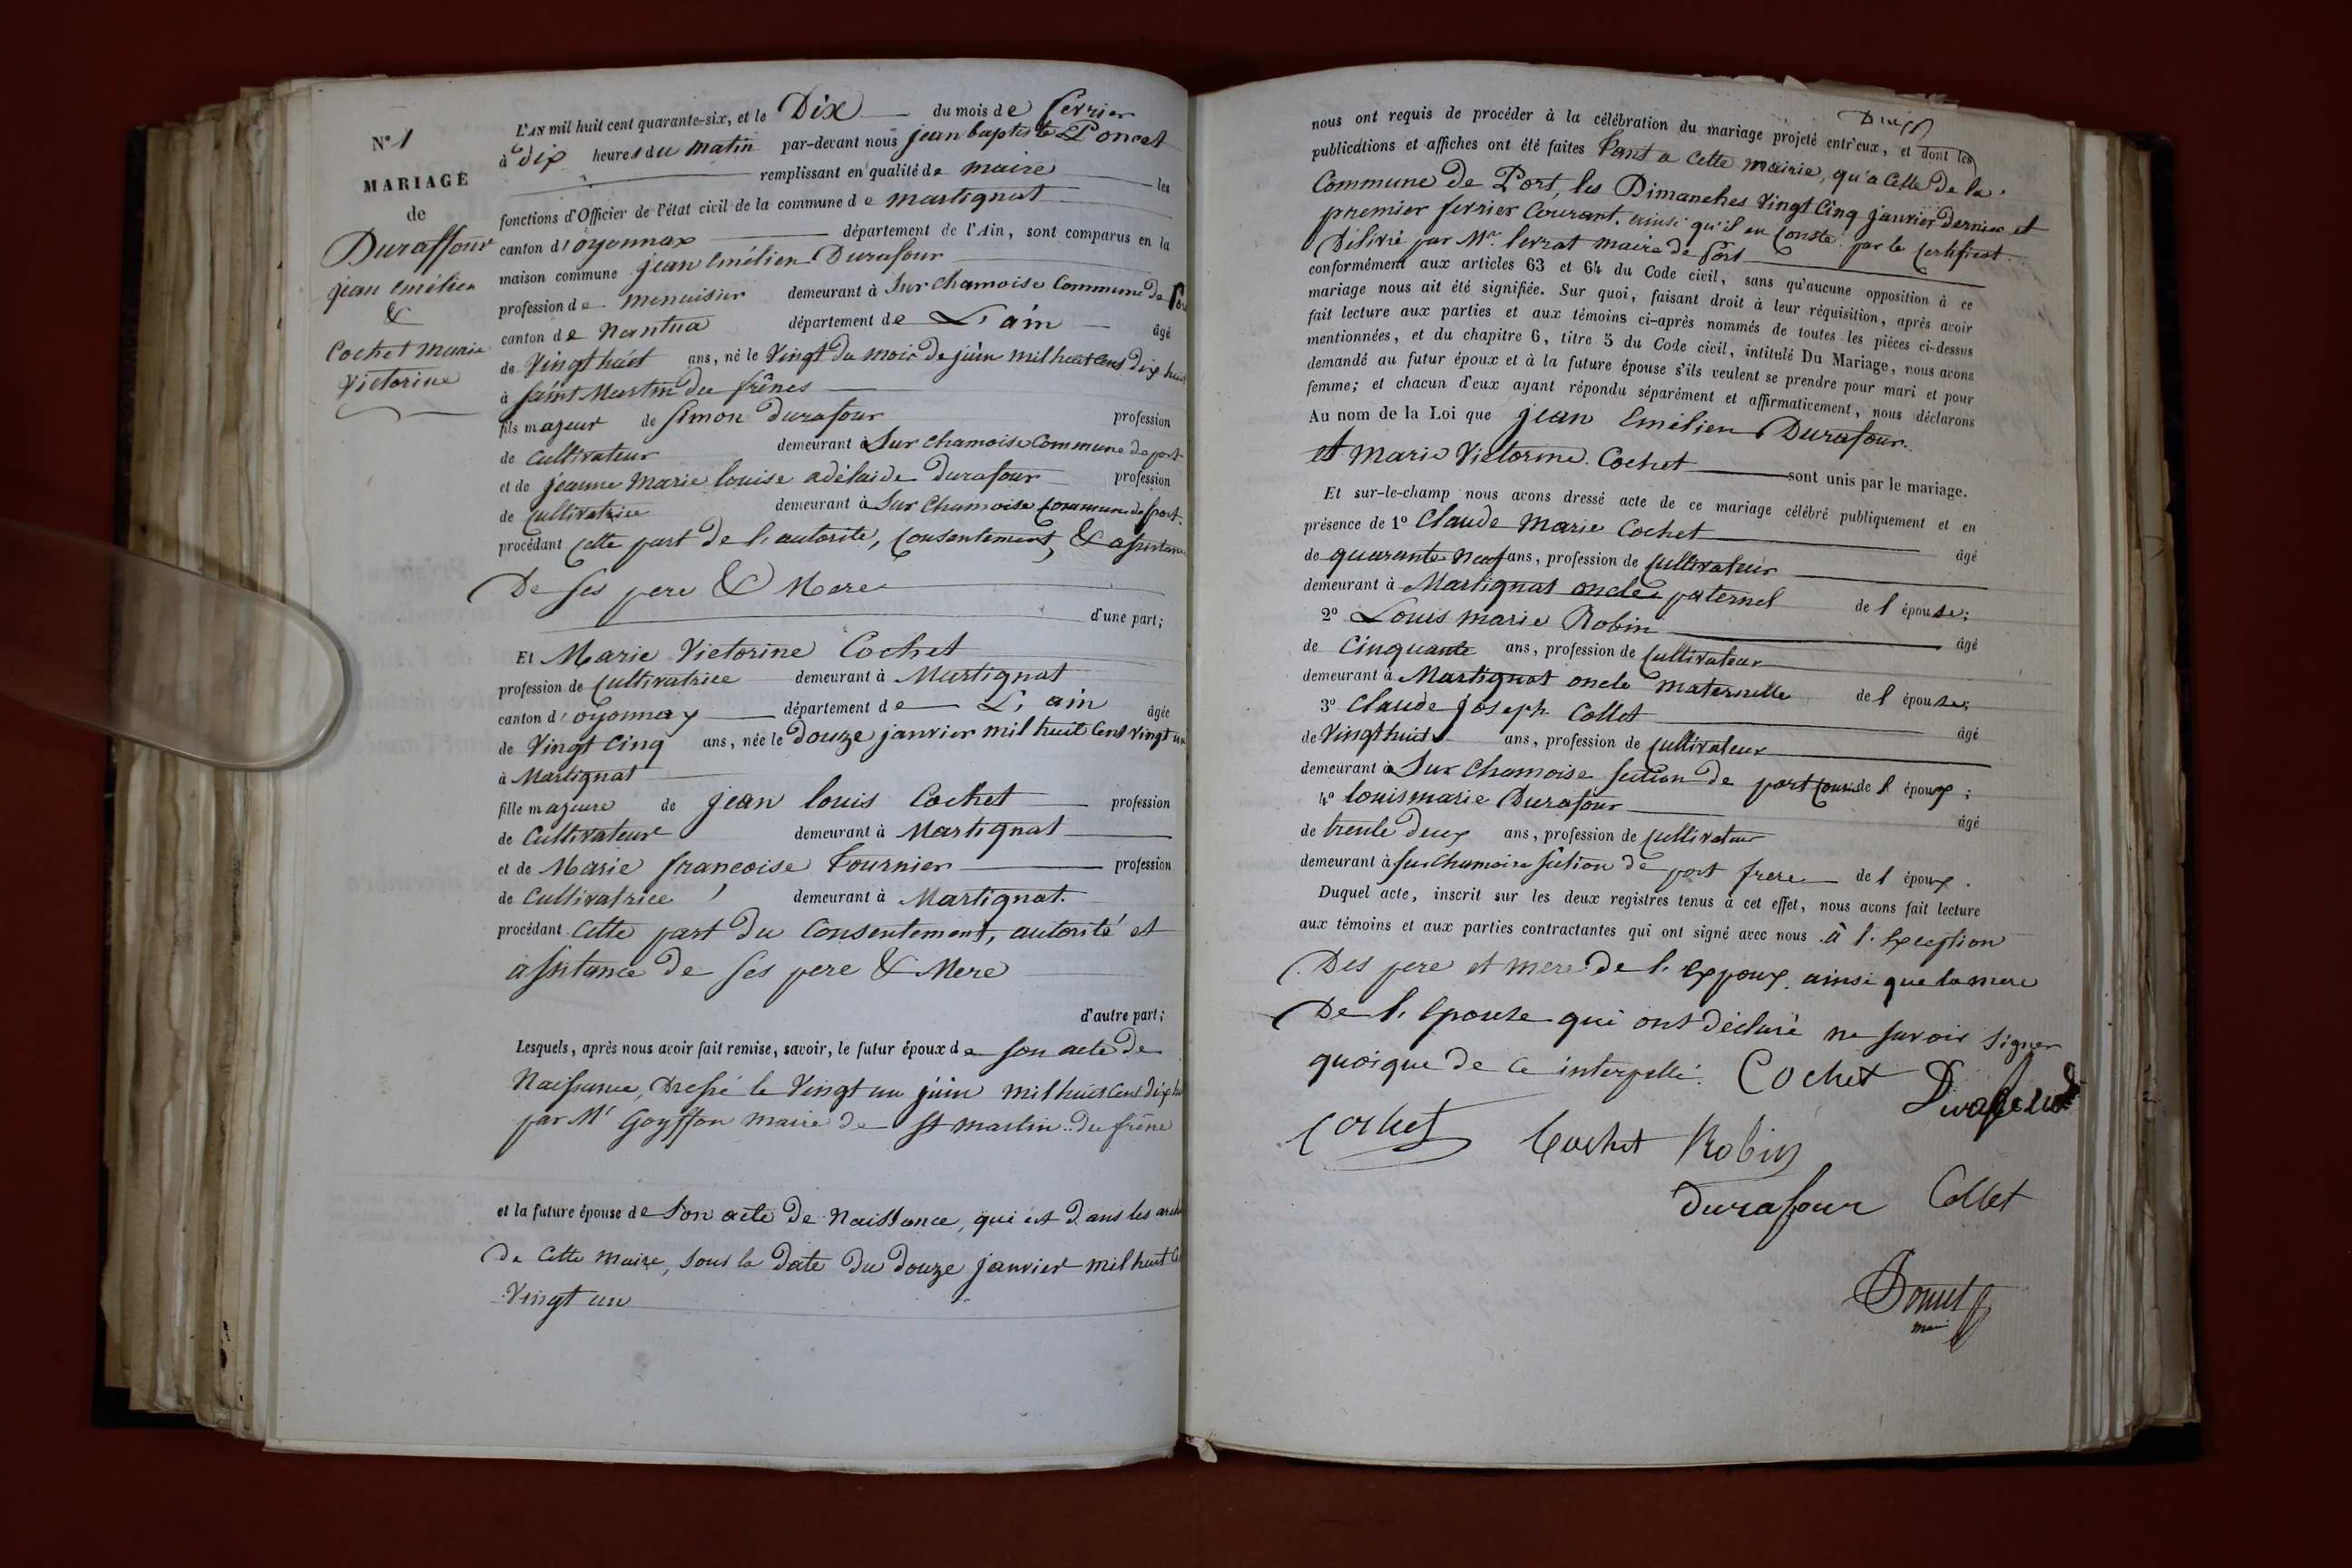 N° 1
MARIAGE
de
Duraffour
jean emélien
&
Cochet marie
Victorine
L'AN mil huit cent quarante-six, et le Dix du mois de fevrier
à dix heures du matin par-devant nous jean baptiste Poncet
remplissant en qualité de maire les
fonctions d'Officier de l'état civil de la commune de martignat
canton d'oyonnax département de l'Ain, sont comparus en la
maison commune jean emélien Durafour
profession de menuisier demeurant à Sur chamoise Commune de
canton de Nantua département de L'ain âgé
de Vingt huit ans, né le Vingt du mois de juin mil huit cent dix huit
à saint Martin du frênes
fils majeur de simon durafour profession
de cultivateur demeurant à Sur chamoise Commune de port
et de jeanne Marie louise adélaide durafour profession
de cultivatrice demeurant à Sur chamoise Commune de port.
procédant cette part de l'autorité, consentement, & assistance
De ses pere & Mere
d'une part;
Et Marie Victorine Cochet
profession de cultivatrice demeurant à Martignat
canton d'oyonnax département de L'ain âgée
de Vingt cinq ans, née le douze janvier mil huit cent vingt un
à Martignat
fille majeure de jean louis Cochet profession
de Cultivateur demeurant à Martignat
et de Marie francoise tournier profession
de Cultivatrice demeurant à Martignat.
procédant cette part du consentement, autorité et
assitance de ses pere & Mere
d'autre part;
Lesquels, après nous avoir fait remise, savoir, le futur époux de son acte de
Naissance, Dressé le Vingt un juin mil huit cent dix
par Mr Goyffon maire de st martin du frêne
et la future épouse de Son acte de Naissance, qui est dans les
de cette maire, sous la date du douze janvier mil huit
Vingt un
nous ont requis de procéder à la célébration du mariage projeté entr'eux, et dont les
publications et affiches ont été faites tant a cette mairie, qu'a celle de la
Commune de Port, les Dimanches Vingt Cinq janvier dernier et
premier fevrier Courant. ainsi qu'il en Conste par le Certificat
Délivré par Mr. levrat maire de Port
conformément aux articles 63 et 64 du Code civil, sans qu'aucune opposition à ce
mariage nous ait été signifiée. Sur quoi, faisant droit à leur réquisition, après avoir
fait lecture aux parties et aux témoins ci-après nommés de toutes les pièces ci-dessus
mentionnées, et du chapitre 6, titre 5 du Code civil, intitulé Du Mariage, nous avons
demandé au futur époux et à la future épouse s'ils veulent se prendre pour mari et pour
femme; et chacun d'eux ayant répondu séparément et affirmativement, nous déclarons
Au nom de la Loi que jean Emélien Durafour
et Marie Victorine Cochet sont unis par le mariage.
Et sur-le-champ nous avons dressé acte de ce mariage célébré publiquement et en
présence de 1° Claude Marie Cochet âgé
de quarante Neuf ans, profession de cultivateur
demeurant à Martignat oncle paternel de l'épouse;
2° Louis marie Robin âgé
de Cinquante ans, profession de cultivateur
demeurant à Martignat oncle maternelle de l'épouse;
3° Claude joseph Collet âgé
de Vingt huit ans, profession de cultivateur
demeurant à Sur chamoise section de port de l'époux;
4° louis marie Durafour âgé
de trente deux ans, profession de cultivateur
demeurant à Sur chamoise section de port frere de l'époux.
Duquel acte, inscrit sur les deux registres tenus à cet effet, nous avons fait lecture
aux témoins et aux parties contractantes qui ont signé avec nous à l'exception
Des pere et mere de l'epoux. ainsi que la mere
De l'epouse qui ont déclaré ne savoir signer
quoique de ce interpellé. Cochet Durafour
Cochet Cochet Robin
durafour Collet
Poncet